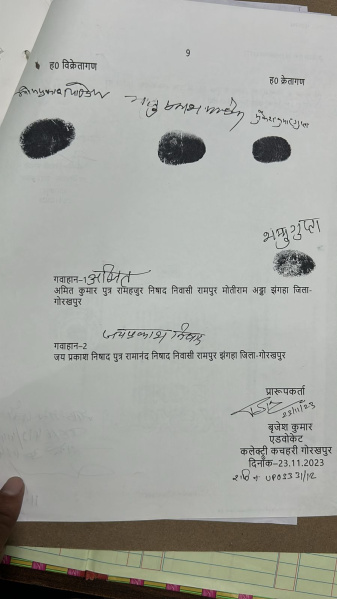 9
ह0 विक्रेतागण
ह0 क्रेतागण
गवाहान-1 अमित
अमित कुमार पुत्र रामहजुर निषाद निवासी रामपुर मोतीराम अड्डा झंगहा जिला-
गोरखपुर
जयप्रकाश निषाद
गवाहान-2
जय प्रकाश निषाद पुत्र रामानंद निषाद निवासी रामपुर झंगहा जिला-गोरखपुर
प्रारूपकर्ता
23/11/23
बृजेश कुमार
एडवोकेट
कलेक्ट्री कचहरी गोरखपुर
दिनाँक-23.11.2023